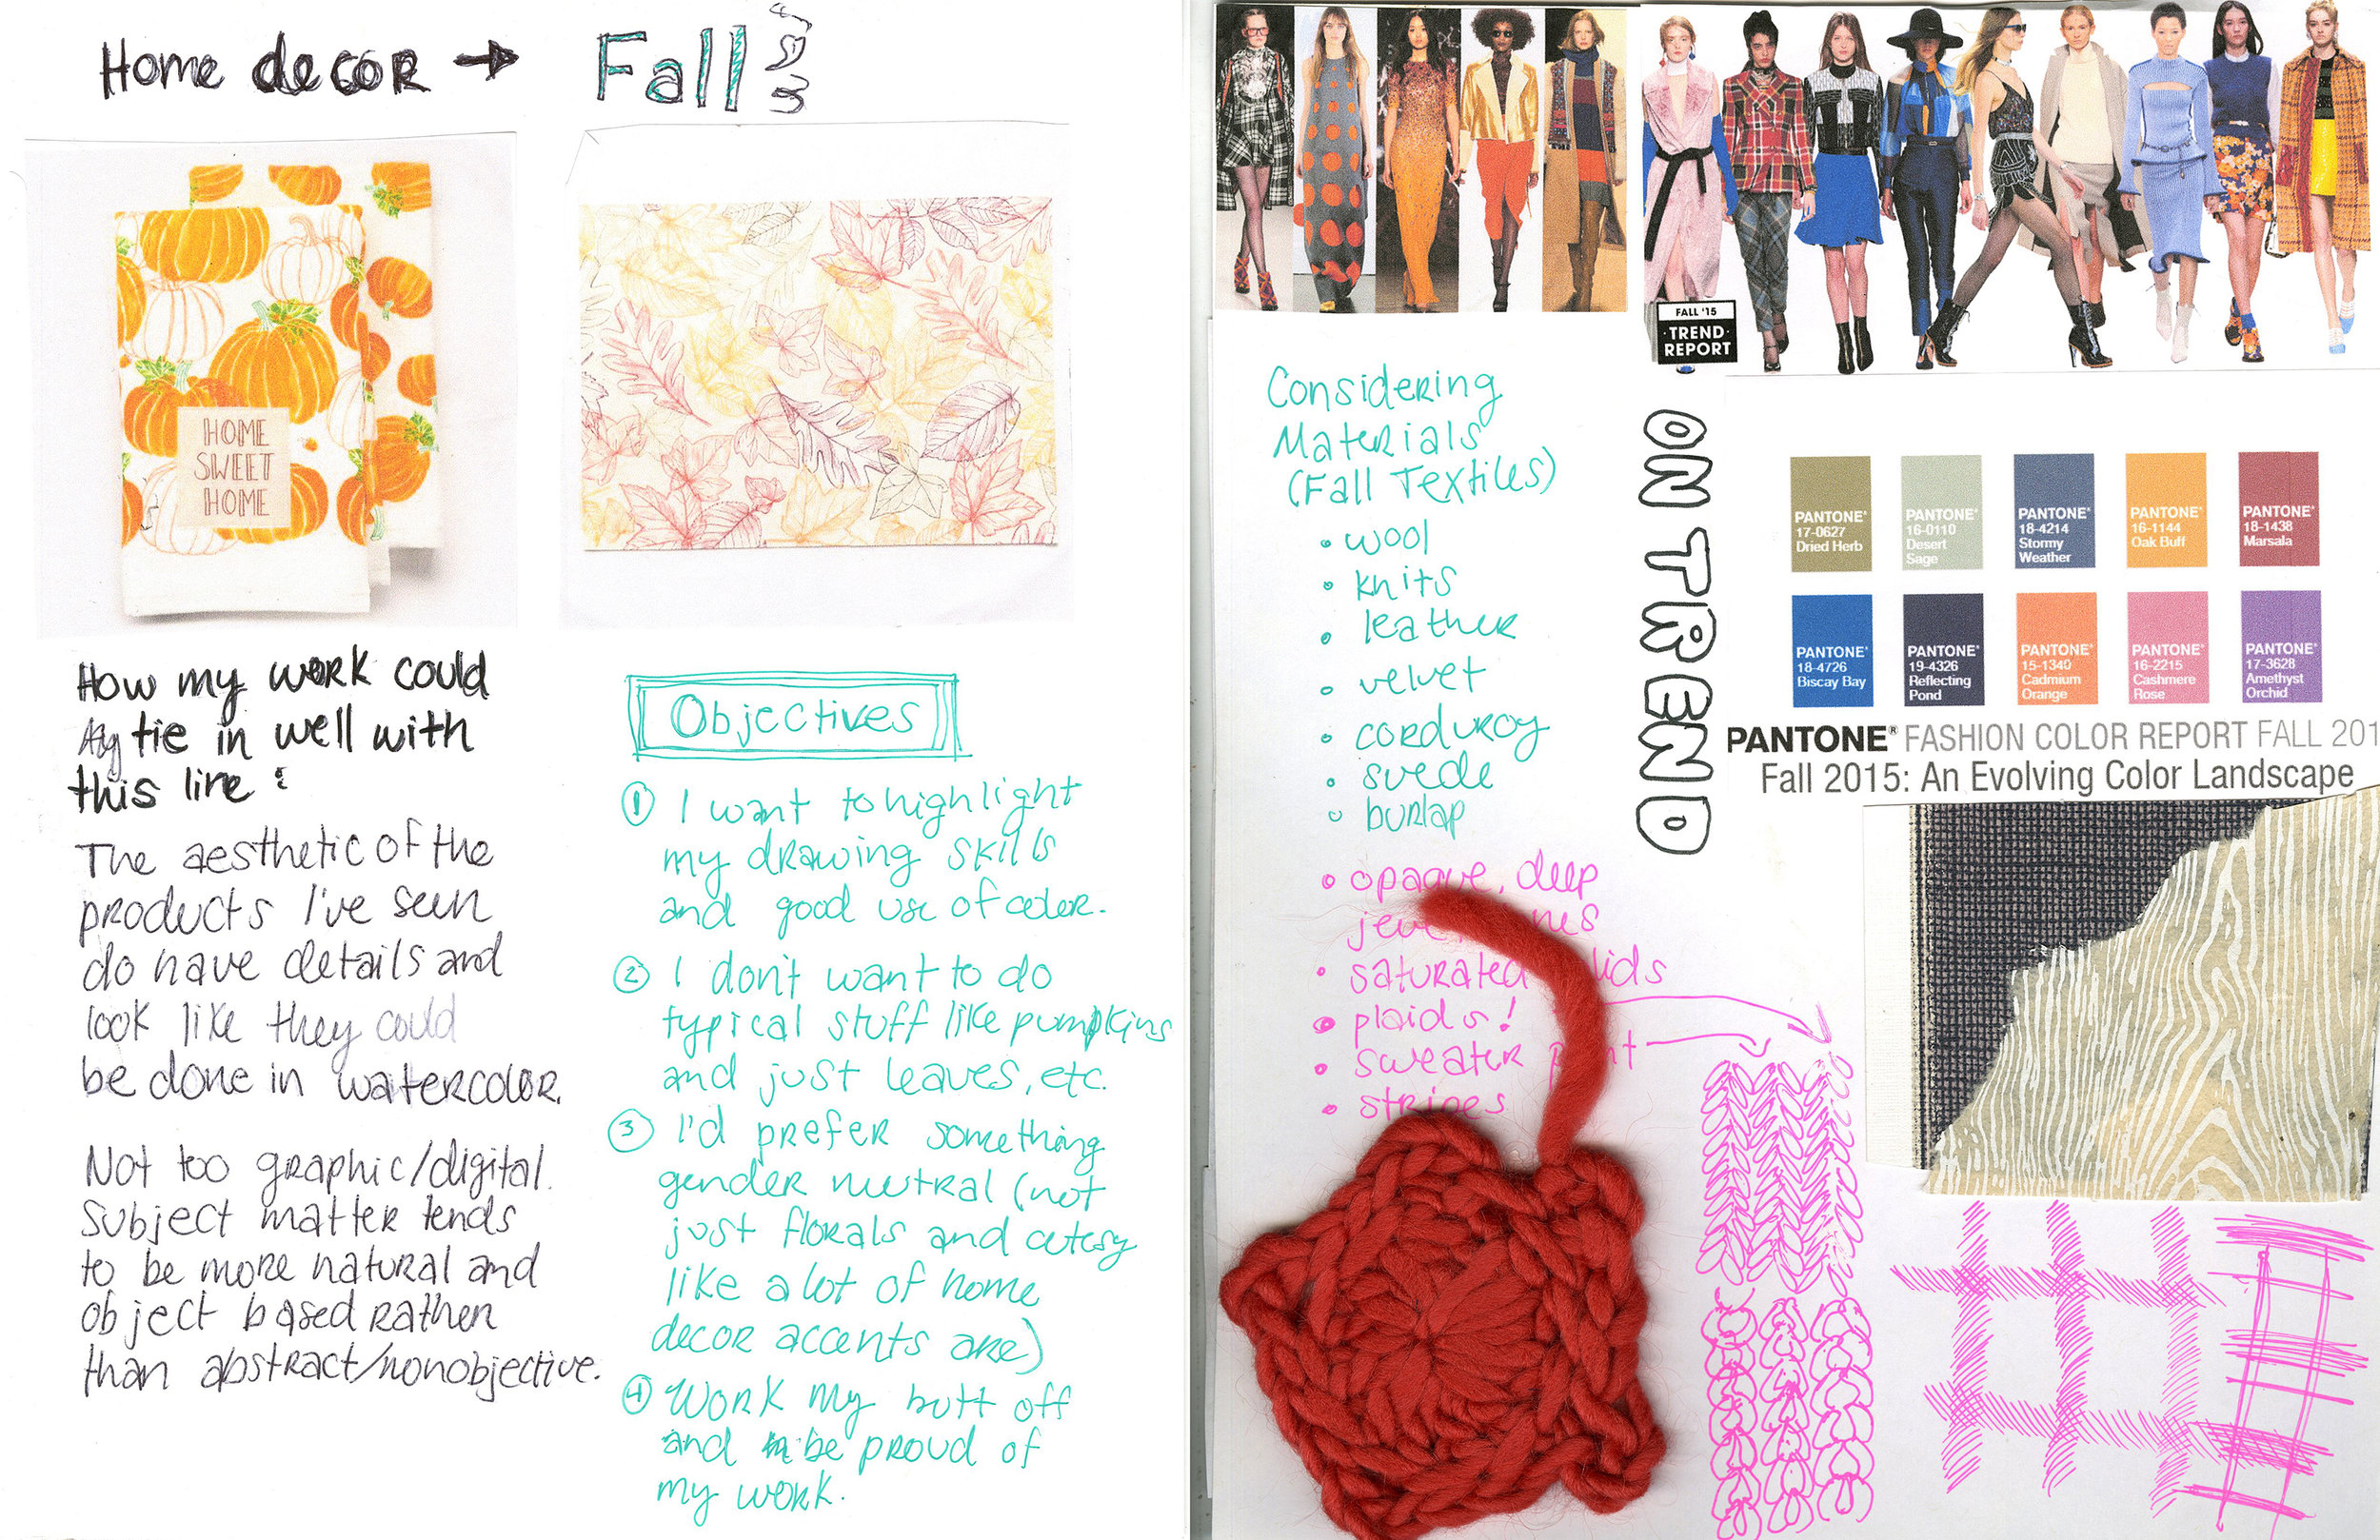 Home decor →
Fall
HOME
SWEET
HOME
How my work could
tie in well with
this line:
The aesthetic of the
products I've seen
do have details and
look like they could
be done in watercolor.
Not too graphic/digital.
Subject matter tends
to be more natural and
object based rather
than abstract/nonobjective.
Objectives
① I want to highlight
my drawing skills
and good use of color.
② I don't want to do
typical stuff like pumpkins
and just leaves, etc.
③ I'd prefer something
gender neutral (not
just florals and cutesy
like a lot of home
decor accents are)
④ Work my butt off
and be proud of
my work.
FALL '15
TREND
REPORT
Considering
Materials
(Fall Textiles)
• wool
• knits
• leather
• velvet
• corduroy
• suede
• burlap
• opaque, deep
• saturated
• plaids!
• sweater
• stripes
ON TREND
PANTONE®
17-0627
Dried Herb
PANTONE®
16-0110
Desert
Sage
PANTONE®
18-4214
Stormy
Weather
PANTONE®
16-1144
Oak Buff
PANTONE®
18-1438
Marsala
PANTONE®
18-4726
Biscay Bay
PANTONE®
19-4326
Reflecting
Pond
PANTONE®
15-1340
Cadmium
Orange
PANTONE®
16-2215
Cashmere
Rose
PANTONE®
17-3628
Amethyst
Orchid
PANTONE® FASHION COLOR REPORT FALL 201
Fall 2015: An Evolving Color Landscape